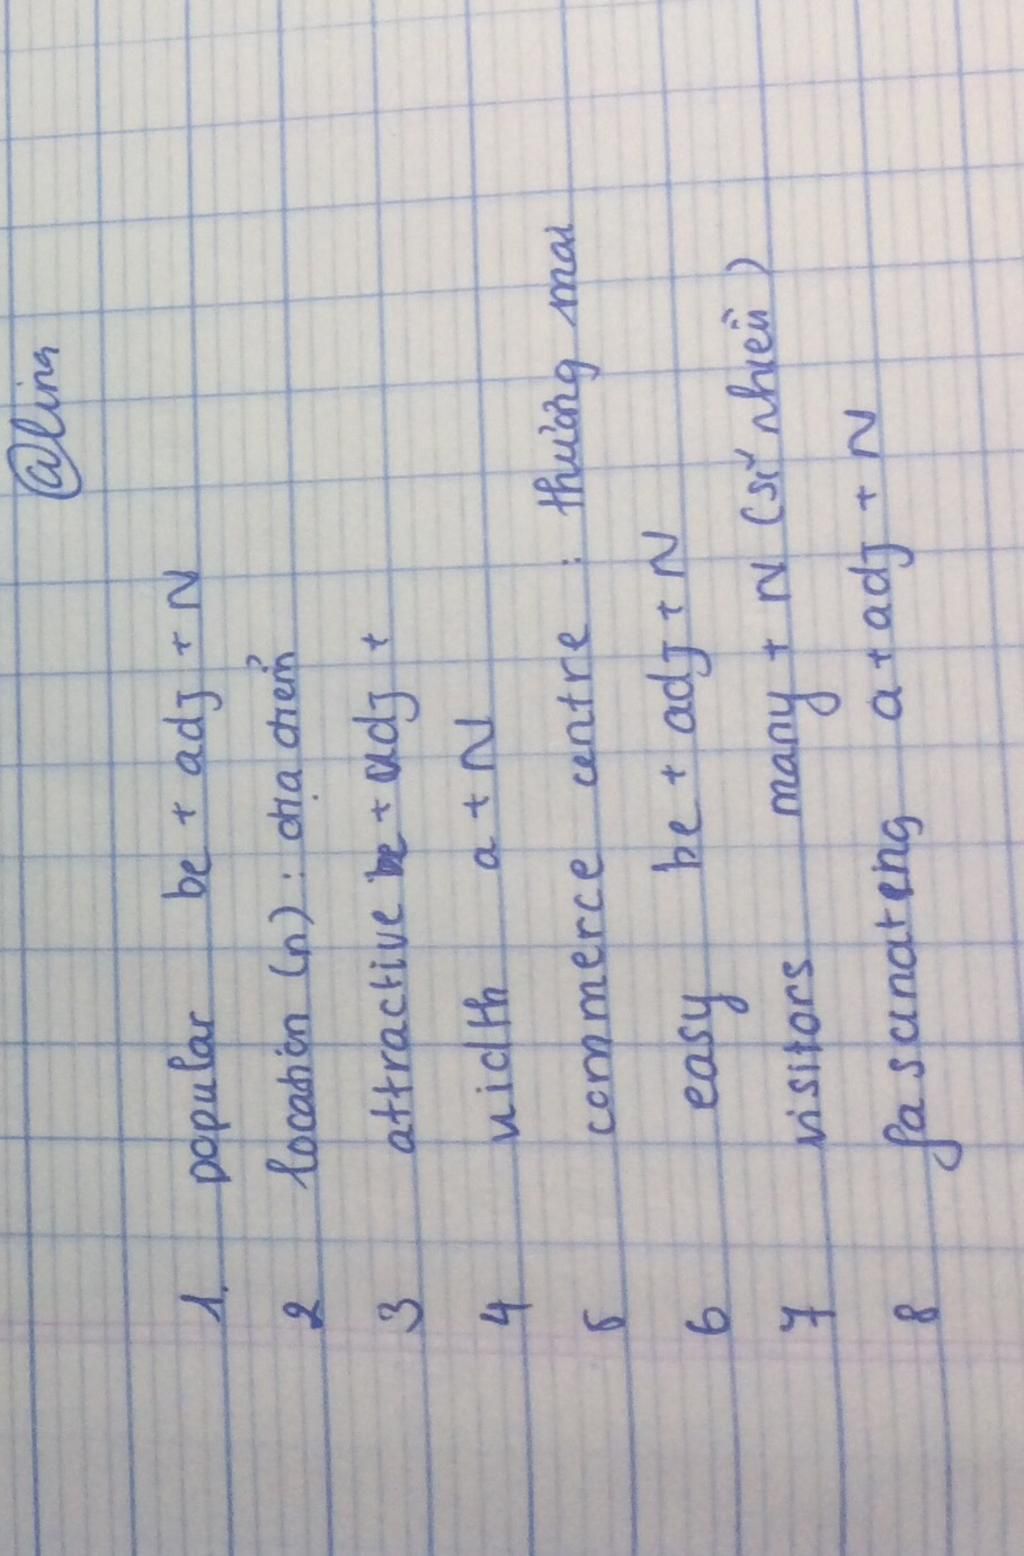 @lina
1. popular be + adj + N
2 location (n) : địa điểm
3 attractive be + adj +
4 width a + N
5 commerce centre : thương mai
6 easy be + adj + N
7 visitors many + N (số nhiều)
8 fascunateng a + adj + N